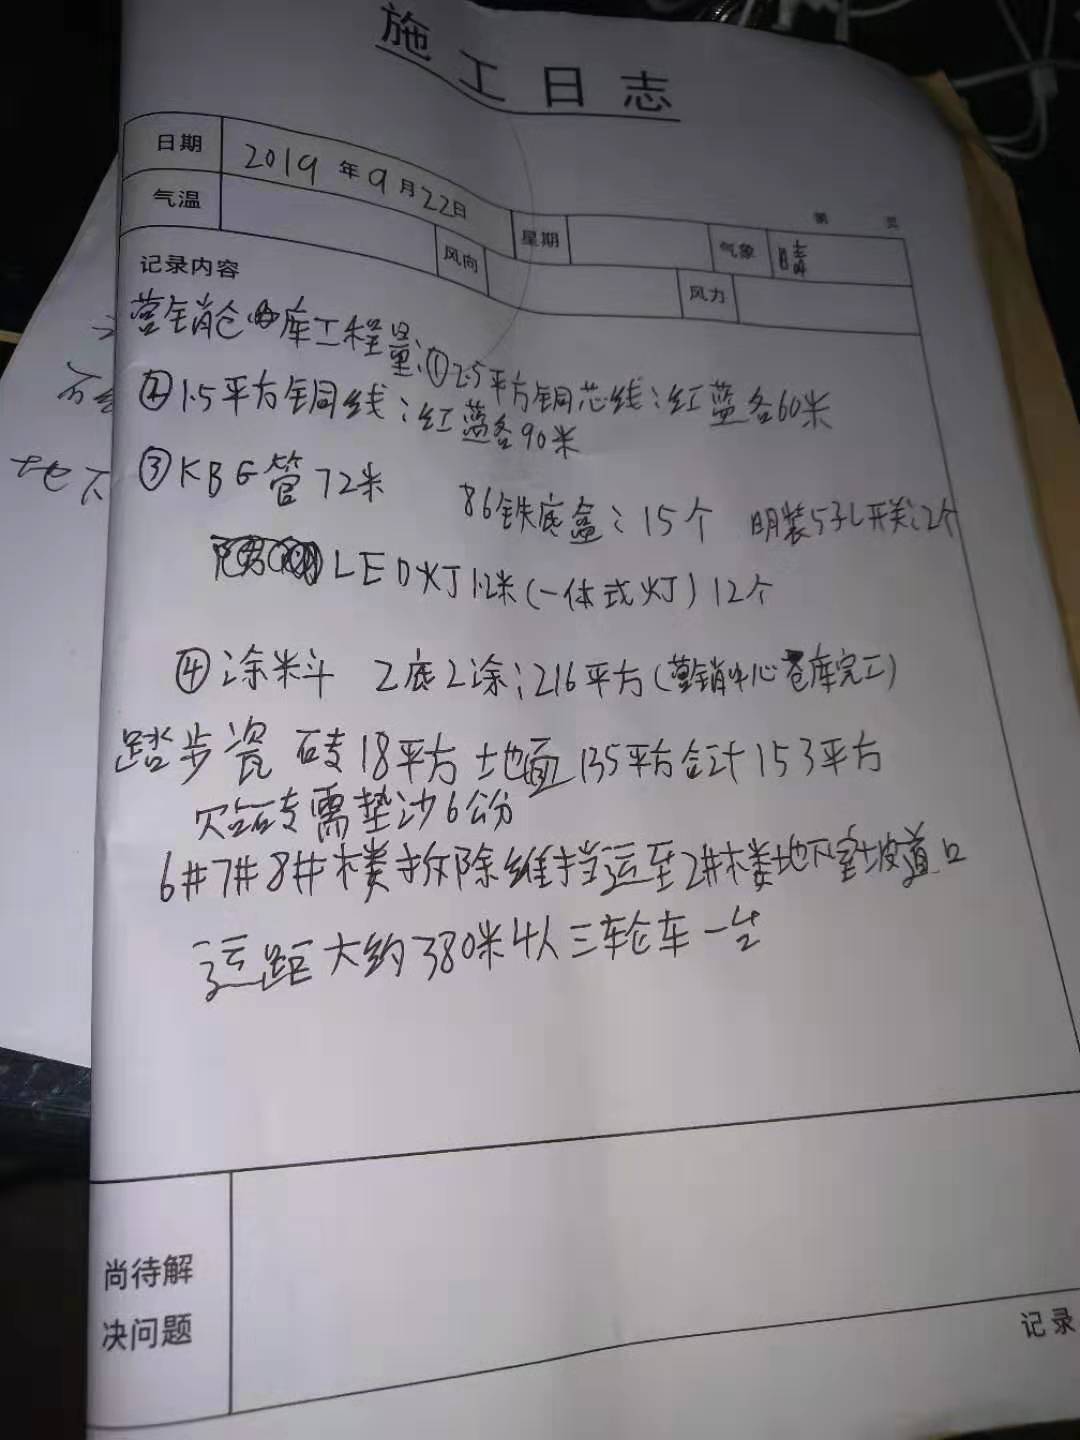 施工日志
第 页
日期 2019年9月22日 星期 气象 晴
气温 风向 风力
记录内容
营销仓库工程量:①2.5平方铜芯线:红蓝各60米
②1.5平方铜线:红蓝各90米
③KBG管72米 86铁底盒:15个 明装5孔开关:2个
LED灯1.2米(一体式灯)12个
④涂料 2底2涂:216平方(营销中心仓库完工)
踏步瓷砖18平方 地面135平方合计153平方
砖需垫沙6公分
6#7#8#楼拆除维挡运至2#楼地下室坡道口
运距大约380米4人三轮车一台
尚待解
决问题
记录